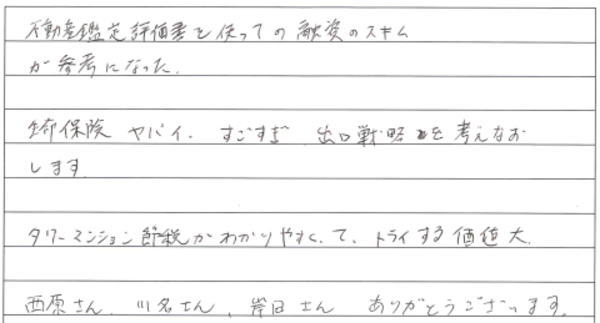 不動産鑑定評価書を使っての融資のスキム
が参考になった.
生命保険 ヤバイ. すごすぎ 出口戦略を考えなお
します.
タワーマンション節税がわかりやすくて、トライする価値大.
西原さん、川名さん、岸田さん ありがとうございます.